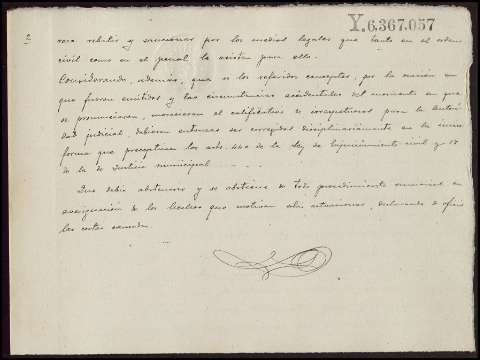 Y.6.367.057
2
para rebatir y sancionar por los medios legales que tanto en el orden
civil como en el penal la asistan para ello.
Considerando, además, que si los referidos conceptos, por la ocasión en
que fueron emitidos y las circunstancias accidentales del momento en que
se pronunciaron, merecieron el calificativo de irrespetuosos para la autori
dad judicial, debieron entonces ser corregidos disciplinariamente en la única
forma que preceptúan los arts. 440 de la ley de Enjuiciamiento civil y 17
de la de Justicia municipal
Que debía abstenerse y se abstiene de todo procedimiento criminal en
averiguación de los hechos que motivan estas actuaciones, declarando de oficio
las costas causadas.